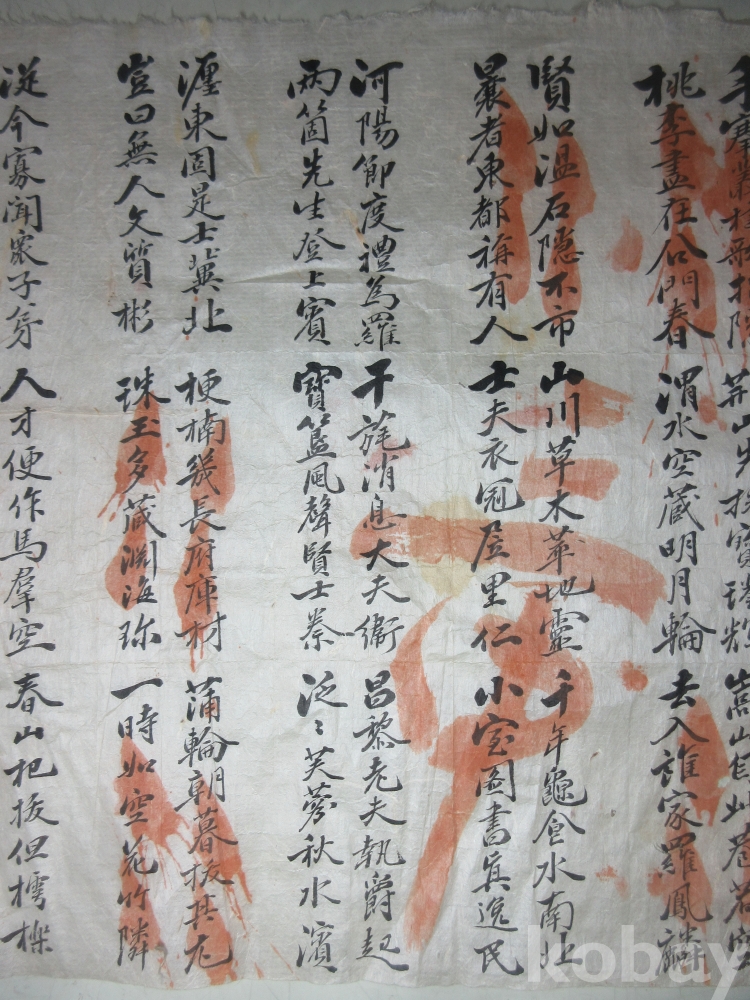 手搴叢桂歌招隱 荊山先 寶 輝 嵩山自此巷若空
桃李盡在公門春 渭水空藏明月輪 去入誰家羅鳳麟
賢如溫石隱不市 山川草木華地靈 千年龜食水南北
曩者東都稱有人 士夫衣冠居里仁 小室圖書眞逸民
河陽節度禮為羅 干旄消息大夫衛 昌黎老夫執爵起
兩箇先生登上賓 寶 風聲賢士秦 泛〻芙蓉秋水濱
瀍東固是士冀北 梗楠幾長府庫材 蒲輪朝暮拔其尤
豈曰無人文質彬 珠玉多藏淵海珍 一時如空花竹隣
從今寡聞衆子身 人才便作馬羣空 春山杞拔但樗櫟
kobay